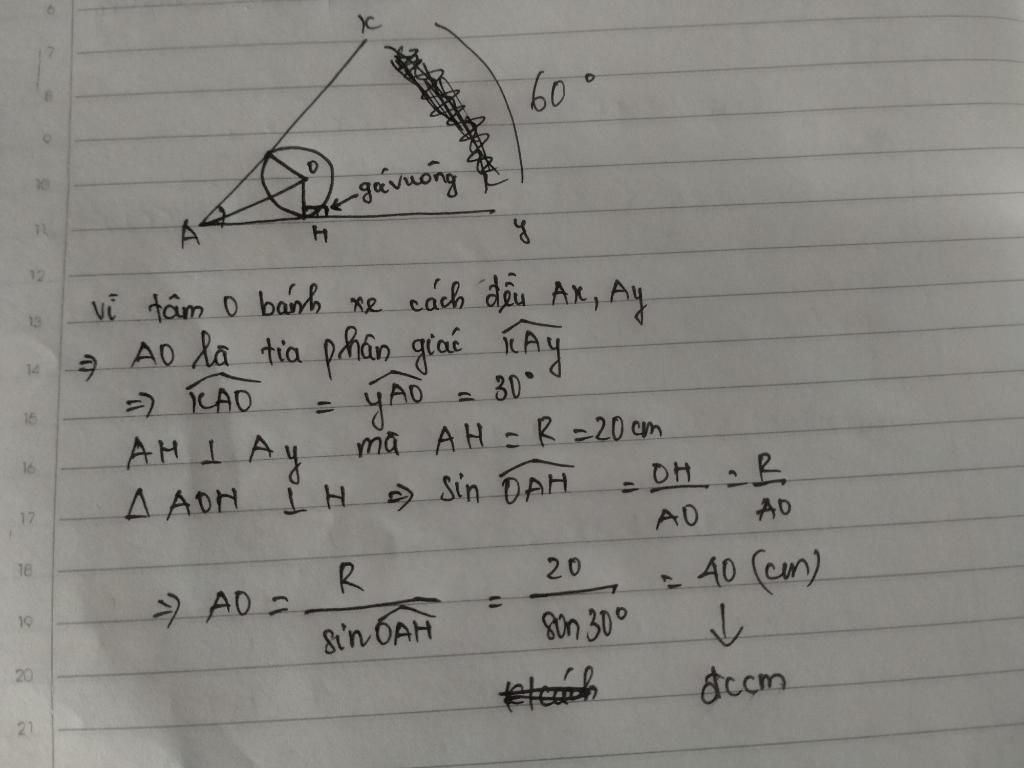 x
60°
O
gávuông
A
H
y
Vì tâm O bánh xe cách đều Ax, Ay
=> AO là tia phân giác xAy
=> xAO = yAO = 30°
AH ⊥ Ay mà AH = R = 20 cm
Δ AOH ⊥ H => sin OAH = OH/AO = R/AO
=> AO = R/sin OAH = 20/sin 30° = 40 (cm)
↓
đccm
6
7
8
9
10
11
12
13
14
15
16
17
18
19
20
21